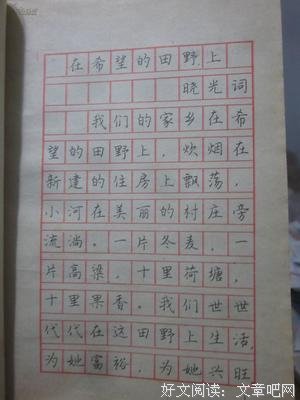 在希望的田野上
晓光词
我们的家乡在希
望的田野上，炊烟在
新建的住房上飘荡，
小河在美丽的村庄旁
流淌。一片冬麦，一
片高粱，十里荷塘，
十里果香。我们世世
代代在这田野上生活，
为她富裕，为她兴旺
好文阅读：文章吧网